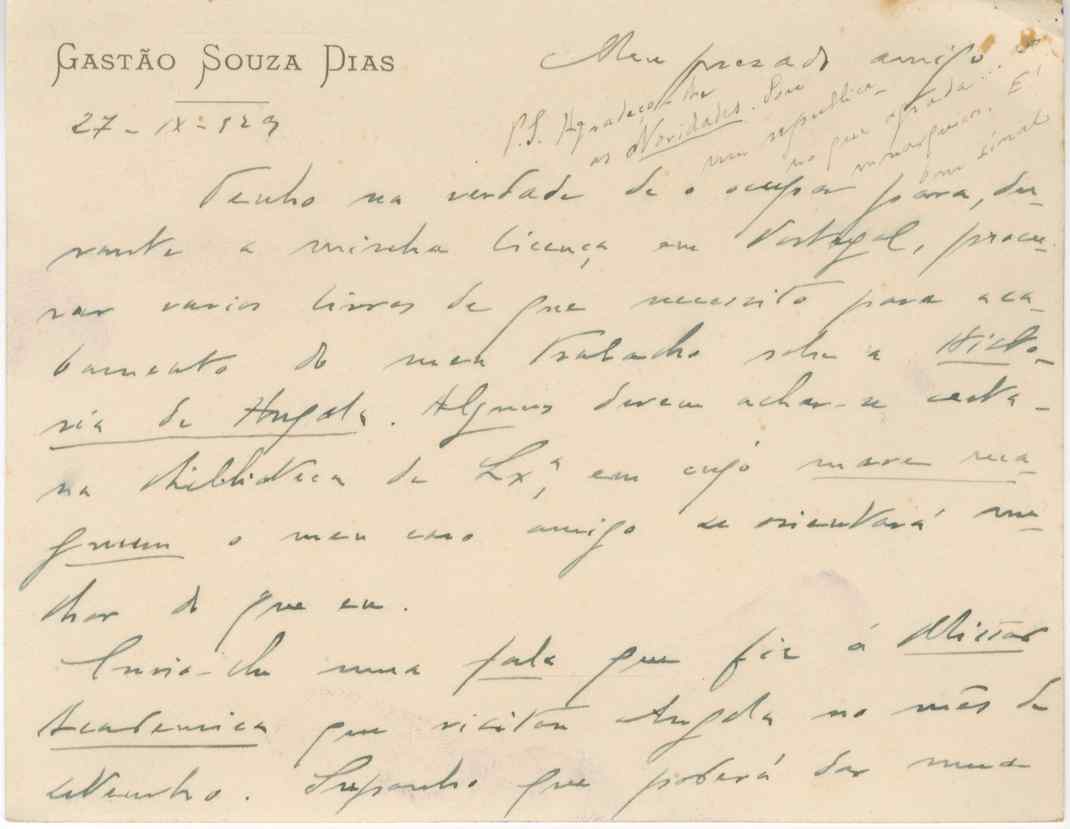 GASTÃO SOUZA DIAS
27-IX-929
Meu prezado amigo
P.S. Agradeço-lhe
as Novidades. Sou
um republica-
no que agrada
monarquicos. É
bom sinal
Tenho na verdade de o ocupar para, du-
rante a minha licença em Portugal, procu-
rar varios livros de que necessito para aca-
bamento do meu trabalho sobre a Histo-
ria de Angola. Alguns devem achar-se nesta
na Biblioteca de Lxª, em cujo mare ma-
gnum o meu caro amigo se orientará me-
lhor do que eu.
Envio-lhe uma fala que fiz á Missão
Academica que visitou Angola no mês de
Setembro. Suponho que poderá dar uma